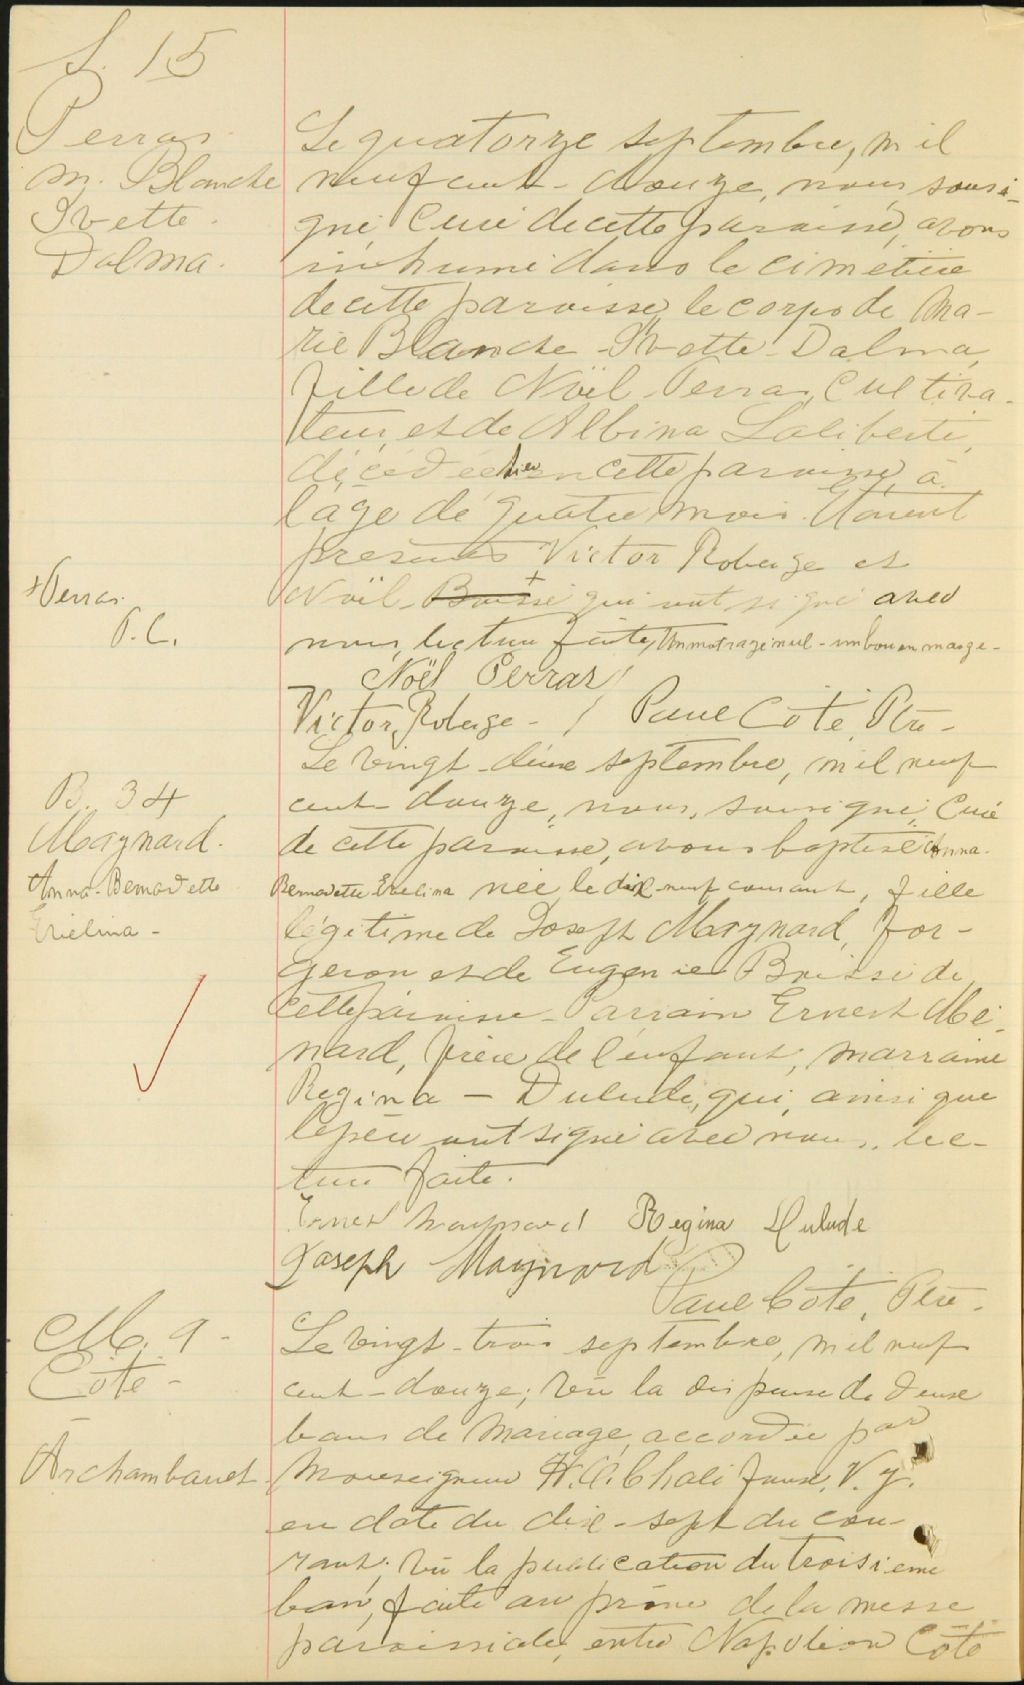 S. 15
Perras
M. Blanche
Ivette
Dalma.
Le quatorze septembre, mil
neuf cent-douze, nous, soussi-
gné, Curé de cette paroisse, avons
inhumé dans le cimetière
de cette paroisse, le corps de Ma-
rie Blanche Ivette Dalma,
fille de Noël Perras, Cultiva-
teur, et de Albina Laliberté,
décédée hier en cette paroisse, à
l'âge de quatre mois. Etaient
présents Victor Roberge et
Noël Boissé + qui ont signé avec
nous, lecture faite, Un mot rayé nul - un bon en marge -
+ Perras.
P. C.
Noël Perras
Victor Roberge - / Paul Côté, Ptre -
B. 34
Maynard.
Anna-Bernadette
Evelina -
Le vingt-deux septembre, mil neuf
cent-douze, nous, soussigné, Curé
de cette paroisse, avons baptisé Anna-
Bernadette Evelina née le dix-neuf courant, fille
légitime de Joseph Maynard, for-
geron et de Eugenie Brissé de
cette paroisse - Parrain Ernest Mé-
nard, frère de l'enfant, marraine
Regina - Dulude, qui, ainsi que
le père ont signé avec nous, lec-
ture faite.
Ernest Maynard Regina Dulude
Joseph Maynard
Paul Côté, Ptre -
M. 9 -
Côté -
-
Archambault
Le vingt-trois septembre, mil neuf
cent-douze; vu la dispense de deux
bans de mariage accordée par
Monseigneur H. A. Chalifoux, V. g.
en date du dix-sept du cou-
rant; vu la publication du troisieme
ban, faite au prône de la messe
paroissiale, entre Napoléon Côté